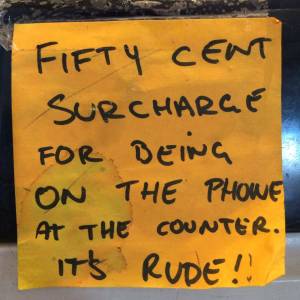 FIFTY CENT
SURCHARGE
FOR BEING
ON THE PHONE
AT THE COUNTER.
IT'S RUDE!!